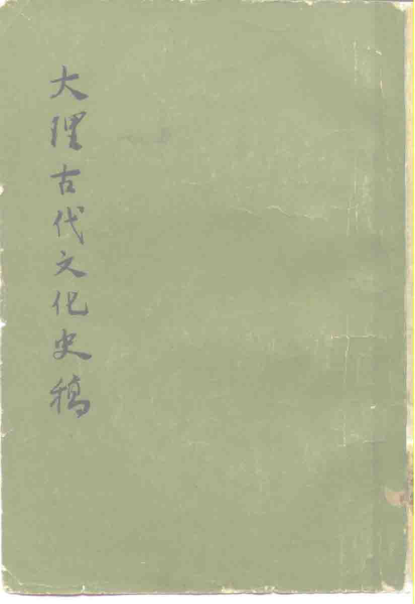 大理古代文化史稿